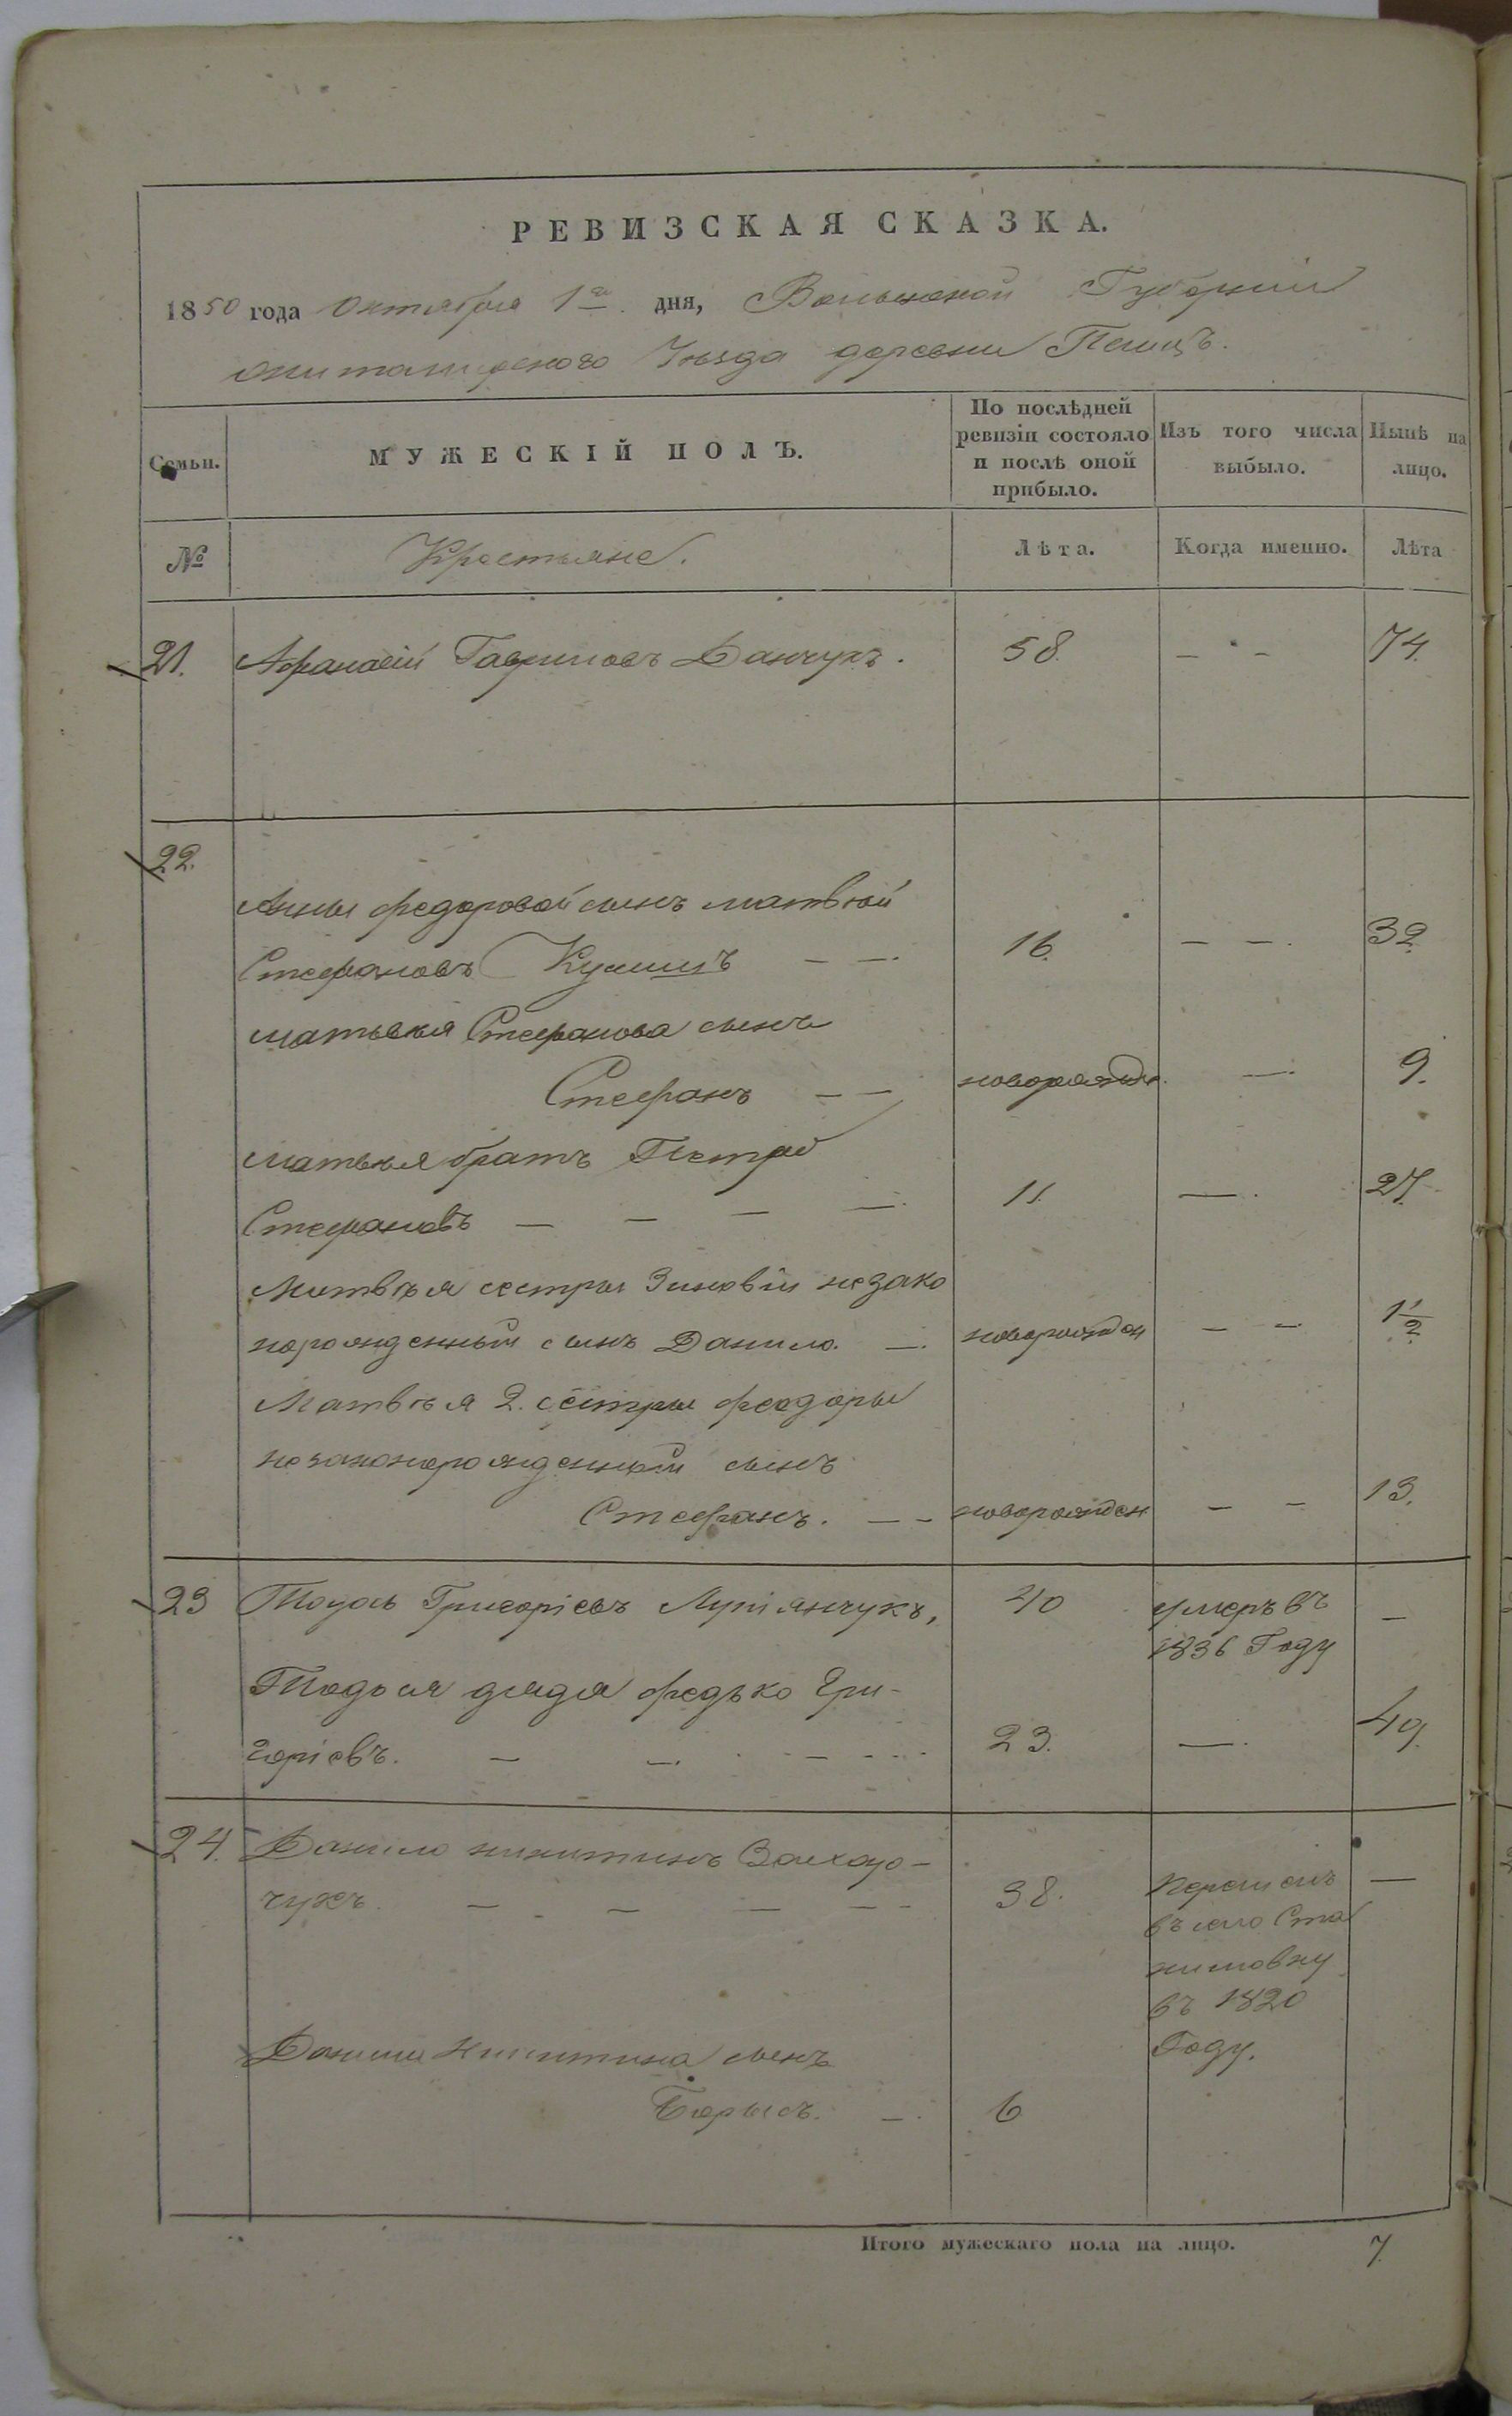 РЕВИЗСКАЯ СКАЗКА.
1850 года Октября 1го дня, Волынской Губернии
Житомирского Уезда деревни
Семьи.
МУЖЕСКІЙ ПОЛЪ.
По послѣдней ревизіи состояло и послѣ оной прибыло.
Изъ того числа выбыло.
Нынѣ на лицо.
№
Крестьяне.
Лѣта.
Когда именно.
Лѣта
21. Афанасій Гавриловъ Данчукъ. 58. — — 74.
22.
Анны Федоровой сынъ Матвѣй
Стефановъ — — 16. — — 32
Матвѣя Стефанова сынъ
Стефанъ — — новорожден. — 9.
Матвѣя братъ Петръ
Стефановъ — — — — 11. — 27.
Матвѣя сестры Зиновіи незако
норожденный сынъ Данило. — новорожден — — 1½
Матвѣя 2. сестры Феодоры
незаконорожденный сынъ
Стефанъ. — — новорожден — — 13.
23 Григоріевъ 40 умеръ въ —
1836 Году
дядя Федько Гри-
горіевъ. — — — 23. — 49.
24. Данило Никитинъ
чукъ. — — — — 38. —
въ село
въ 1820
Году.
Данила Никитина сынъ
Борысъ. — 6
Итого мужескаго пола на лицо. 7